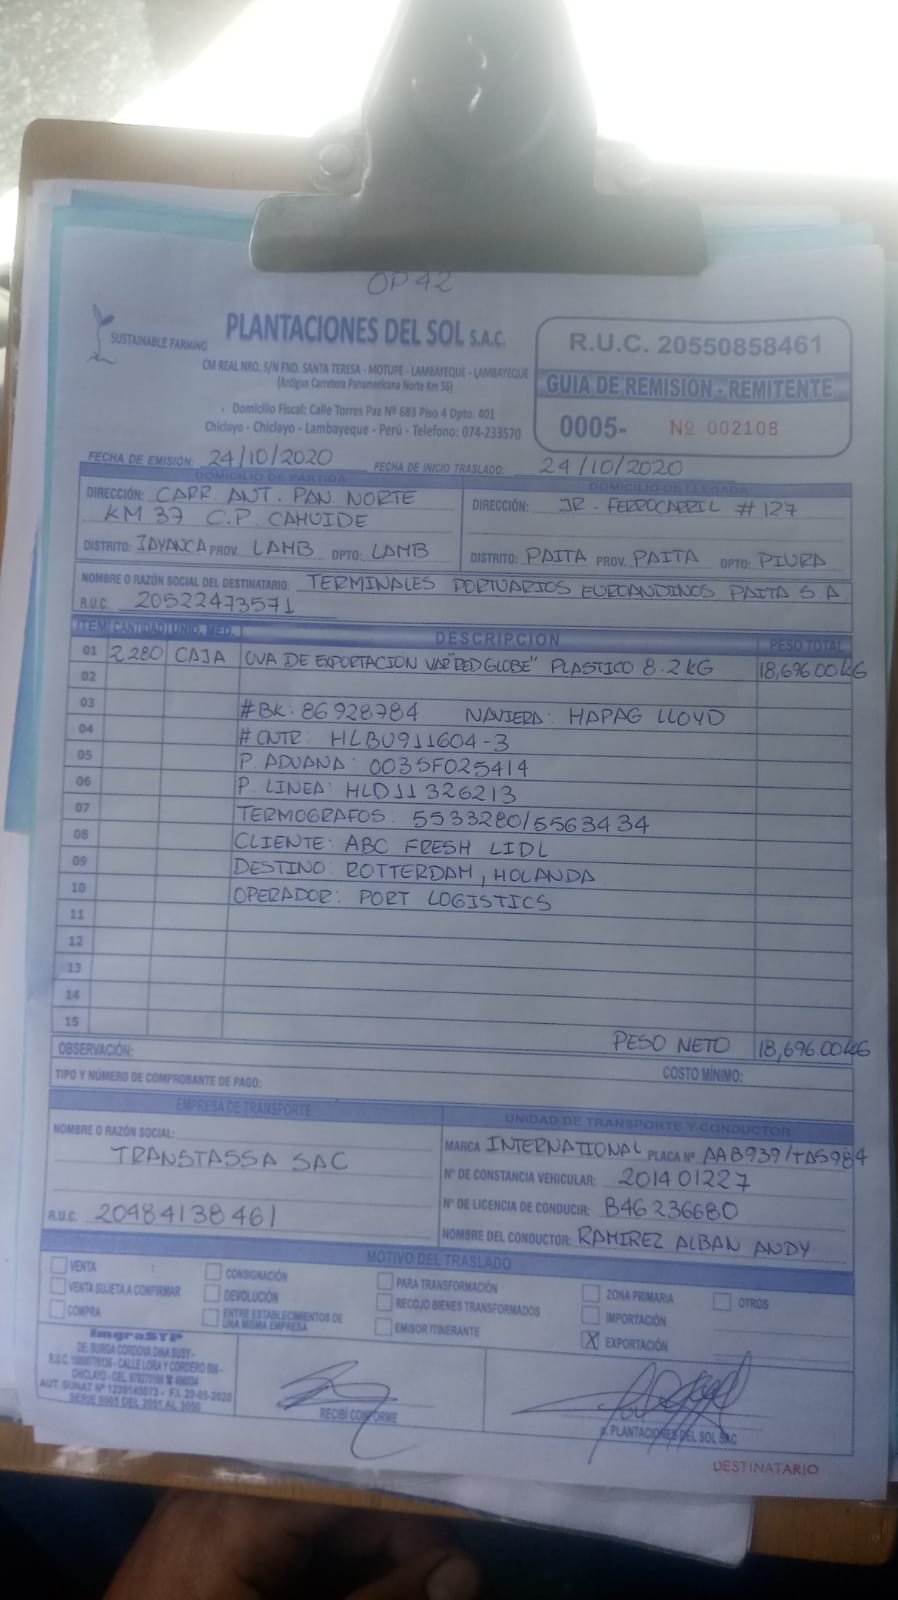 OP 42
SUSTAINABLE FARMING
PLANTACIONES DEL SOL S.A.C.
CM REAL NRO. S/N FND. SANTA TERESA - MOTUPE - LAMBAYEQUE - LAMBAYEQUE
(Antigua Carretera Panamericana Norte Km 56)
Domicilio Fiscal: Calle Torres Paz Nº 683 Piso 4 Dpto. 401
Chiclayo - Chiclayo - Lambayeque - Perú - Telefono: 074-233570
R.U.C. 20550858461
GUIA DE REMISION - REMITENTE
0005- Nº 002108
FECHA DE EMISIÓN: 24/10/2020 FECHA DE INICIO TRASLADO: 24/10/2020
DOMICILIO DE PARTIDA
DIRECCIÓN: CARR. ANT. PAN. NORTE
KM 37 C.P. CAHUIDE
DISTRITO: JAYANCA PROV. LAMB DPTO: LAMB
DOMICILIO DE LLEGADA
DIRECCIÓN: JR. FERROCARRIL # 127
DISTRITO: PAITA PROV. PAITA DPTO: PIURA
NOMBRE O RAZÓN SOCIAL DEL DESTINATARIO: TERMINALES PORTUARIOS EUROANDINOS PAITA S A
R.U.C. 20522473571
ITEM CANTIDAD UNID. MED. DESCRIPCION PESO TOTAL
01 2280 CAJA UVA DE EXPORTACION VAR "RED GLOBE" PLASTICO 8.2 KG 18,696.00 KG
02
03 #BK: 86928784 NAVIERA: HAPAG LLOYD
04 # CNTR: HLBU911604-3
05 P. ADUANA: 0035F025414
06 P. LINEA: HLD11326213
07 TERMOGRAFOS: 5533280/5563434
08 CLIENTE: ABC FRESH LIDL
09 DESTINO: ROTTERDAM, HOLANDA
10 OPERADOR: PORT LOGISTICS
11
12
13
14
15 PESO NETO 18,696.00 KG
OBSERVACIÓN:
TIPO Y NÚMERO DE COMPROBANTE DE PAGO: COSTO MÍNIMO:
EMPRESA DE TRANSPORTE
NOMBRE O RAZÓN SOCIAL:
TRANSTASSA SAC
R.U.C. 20484138461
UNIDAD DE TRANSPORTE Y CONDUCTOR
MARCA INTERNATIONAL PLACA Nº AAB939/TA5984
Nº DE CONSTANCIA VEHICULAR: 201401227
Nº DE LICENCIA DE CONDUCIR: B46236680
NOMBRE DEL CONDUCTOR: RAMIREZ ALBAN ANDY
MOTIVO DEL TRASLADO
VENTA CONSIGNACIÓN PARA TRANSFORMACIÓN ZONA PRIMARIA OTROS
VENTA SUJETA A CONFIRMAR DEVOLUCIÓN RECOJO BIENES TRANSFORMADOS IMPORTACIÓN
COMPRA ENTRE ESTABLECIMIENTOS DE UNA MISMA EMPRESA EMISOR ITINERANTE X EXPORTACIÓN
ImgraSYP
DE: BURGA CORDOVA DINA SUSY -
CALLE LORA Y CORDERO
AUT. SUNAT Nº F.I. 29-05-2020
SERIE 0005 DEL 2051 AL
RECIBÍ CONFORME
p. PLANTACIONES DEL SOL SAC
DESTINATARIO